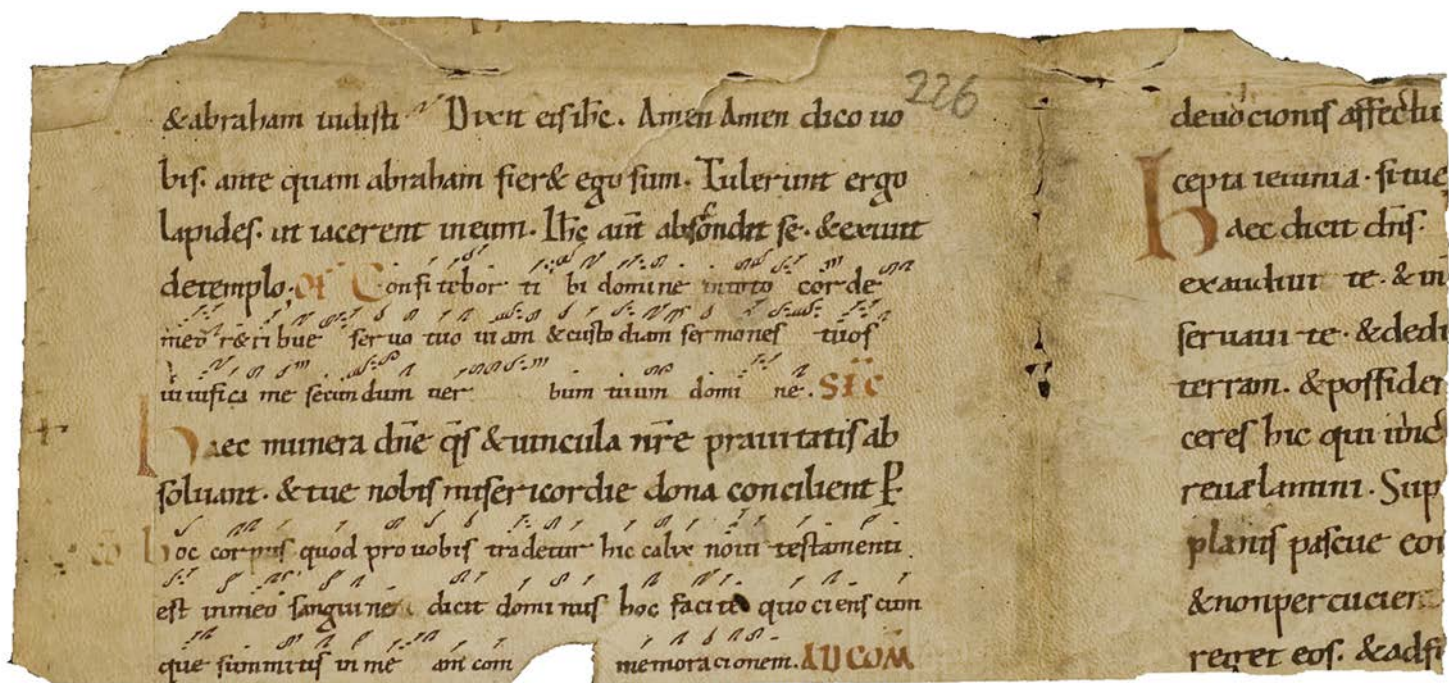 & abraham uidisti Dixit eis ihc. Amen Amen dico uo
bis. ante quam abraham fier& ego sum. Tulerunt ergo
lapides. ut iacerent in eum. Ihc aut abscondit se. & exiuit
de templo; OF Confitebor ti bi domine in toto corde
meo r&ribue seruo tuo uiam & custodiam sermones tuos
uiuifica me secundum uer bum tuum domi ne. SEC
Haec munera dne qs & uincula nre prauitatis ab
soluant. & tue nobis misericordie dona concilient P
Co hoc corpus quod pro uobis tradetur hic calix noui testamenti
est in meo sanguine dicit dominus hoc facite quociens cum
que summitis in me am com memoracionem. AD COM
226
deuocionis affectu
cepta ieiunia.
Haec dicit dns.
exaudiui te. & in
seruaui te. & dedi
terram. & possider
ceres hic qui
reuelamini. Sup
planis pascue eor
& non percucien
reget eos. & ad